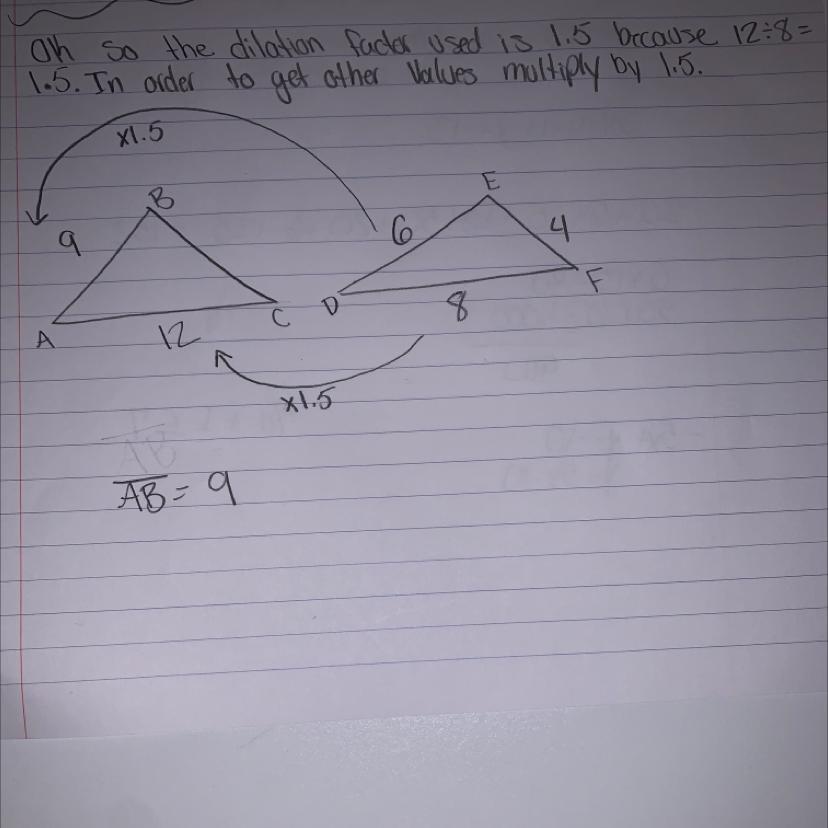 Oh so the dilation factor used is 1.5 because 12÷8=
1.5. In order to get other values multiply by 1.5.
x1.5
B
E
9
6
4
F
D
8
A
12
C
x1.5
AB = 9